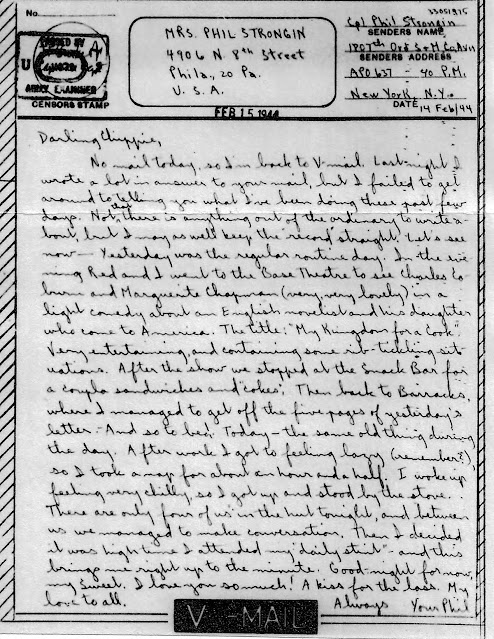 No.
33051975
MRS. PHIL STRONGIN
4906 N. 8th Street
Phila, 20 Pa.
U. S. A.
Cpl Phil Strongin
SENDERS NAME
1807th Ord S+M Co Avn
SENDERS ADDRESS
APO 637 - % P.M.
New York, N.Y.
DATE 14 Feb/44
PASSED BY
U
ARMY EXAMINER
CENSORS STAMP
FEB 15 1944
Darling Chippie,
No mail today, so I'm back to V-mail. Last night I
wrote a lot in answer to your mail, but I failed to get
around to telling you what I've been doing these past few
days. Not, there is anything out of the ordinary to write a-
bout, but I may as well keep the record straight. Let's see
now — Yesterday was the regular routine day. In the eve-
ning Red and I went to the Base Theatre to see Charles Co-
burn and Marguerite Chapman (very, very lovely) in a
light comedy about an English novelist and his daughter
who come to America. The title: "My Kingdom for a Cook".
Very entertaining, and containing some rib-tickling sit-
uations. After the show we stopped at the Snack Bar for
a coupla sandwiches and 'cokes'. Then back to Barracks,
where I managed to get off the five pages of yestiday's
letter - And so to bed. Today - the same old thing during
the day. After work I got to feeling lazy (remember?),
so I took a nap for about an hour and a half. I woke up
feeling very chilly, so I got up and stood by the stove.
There are only four of us in the hut tonight, and between
us we managed to make conversation. Then I decided
it was high time I attended my "daily stint" - and this
brings me right up to the minute. Good-night for now,
my Sweet. I love you so much! A kiss for the lass. My
love to all.
Always
Your Phil
V - MAIL